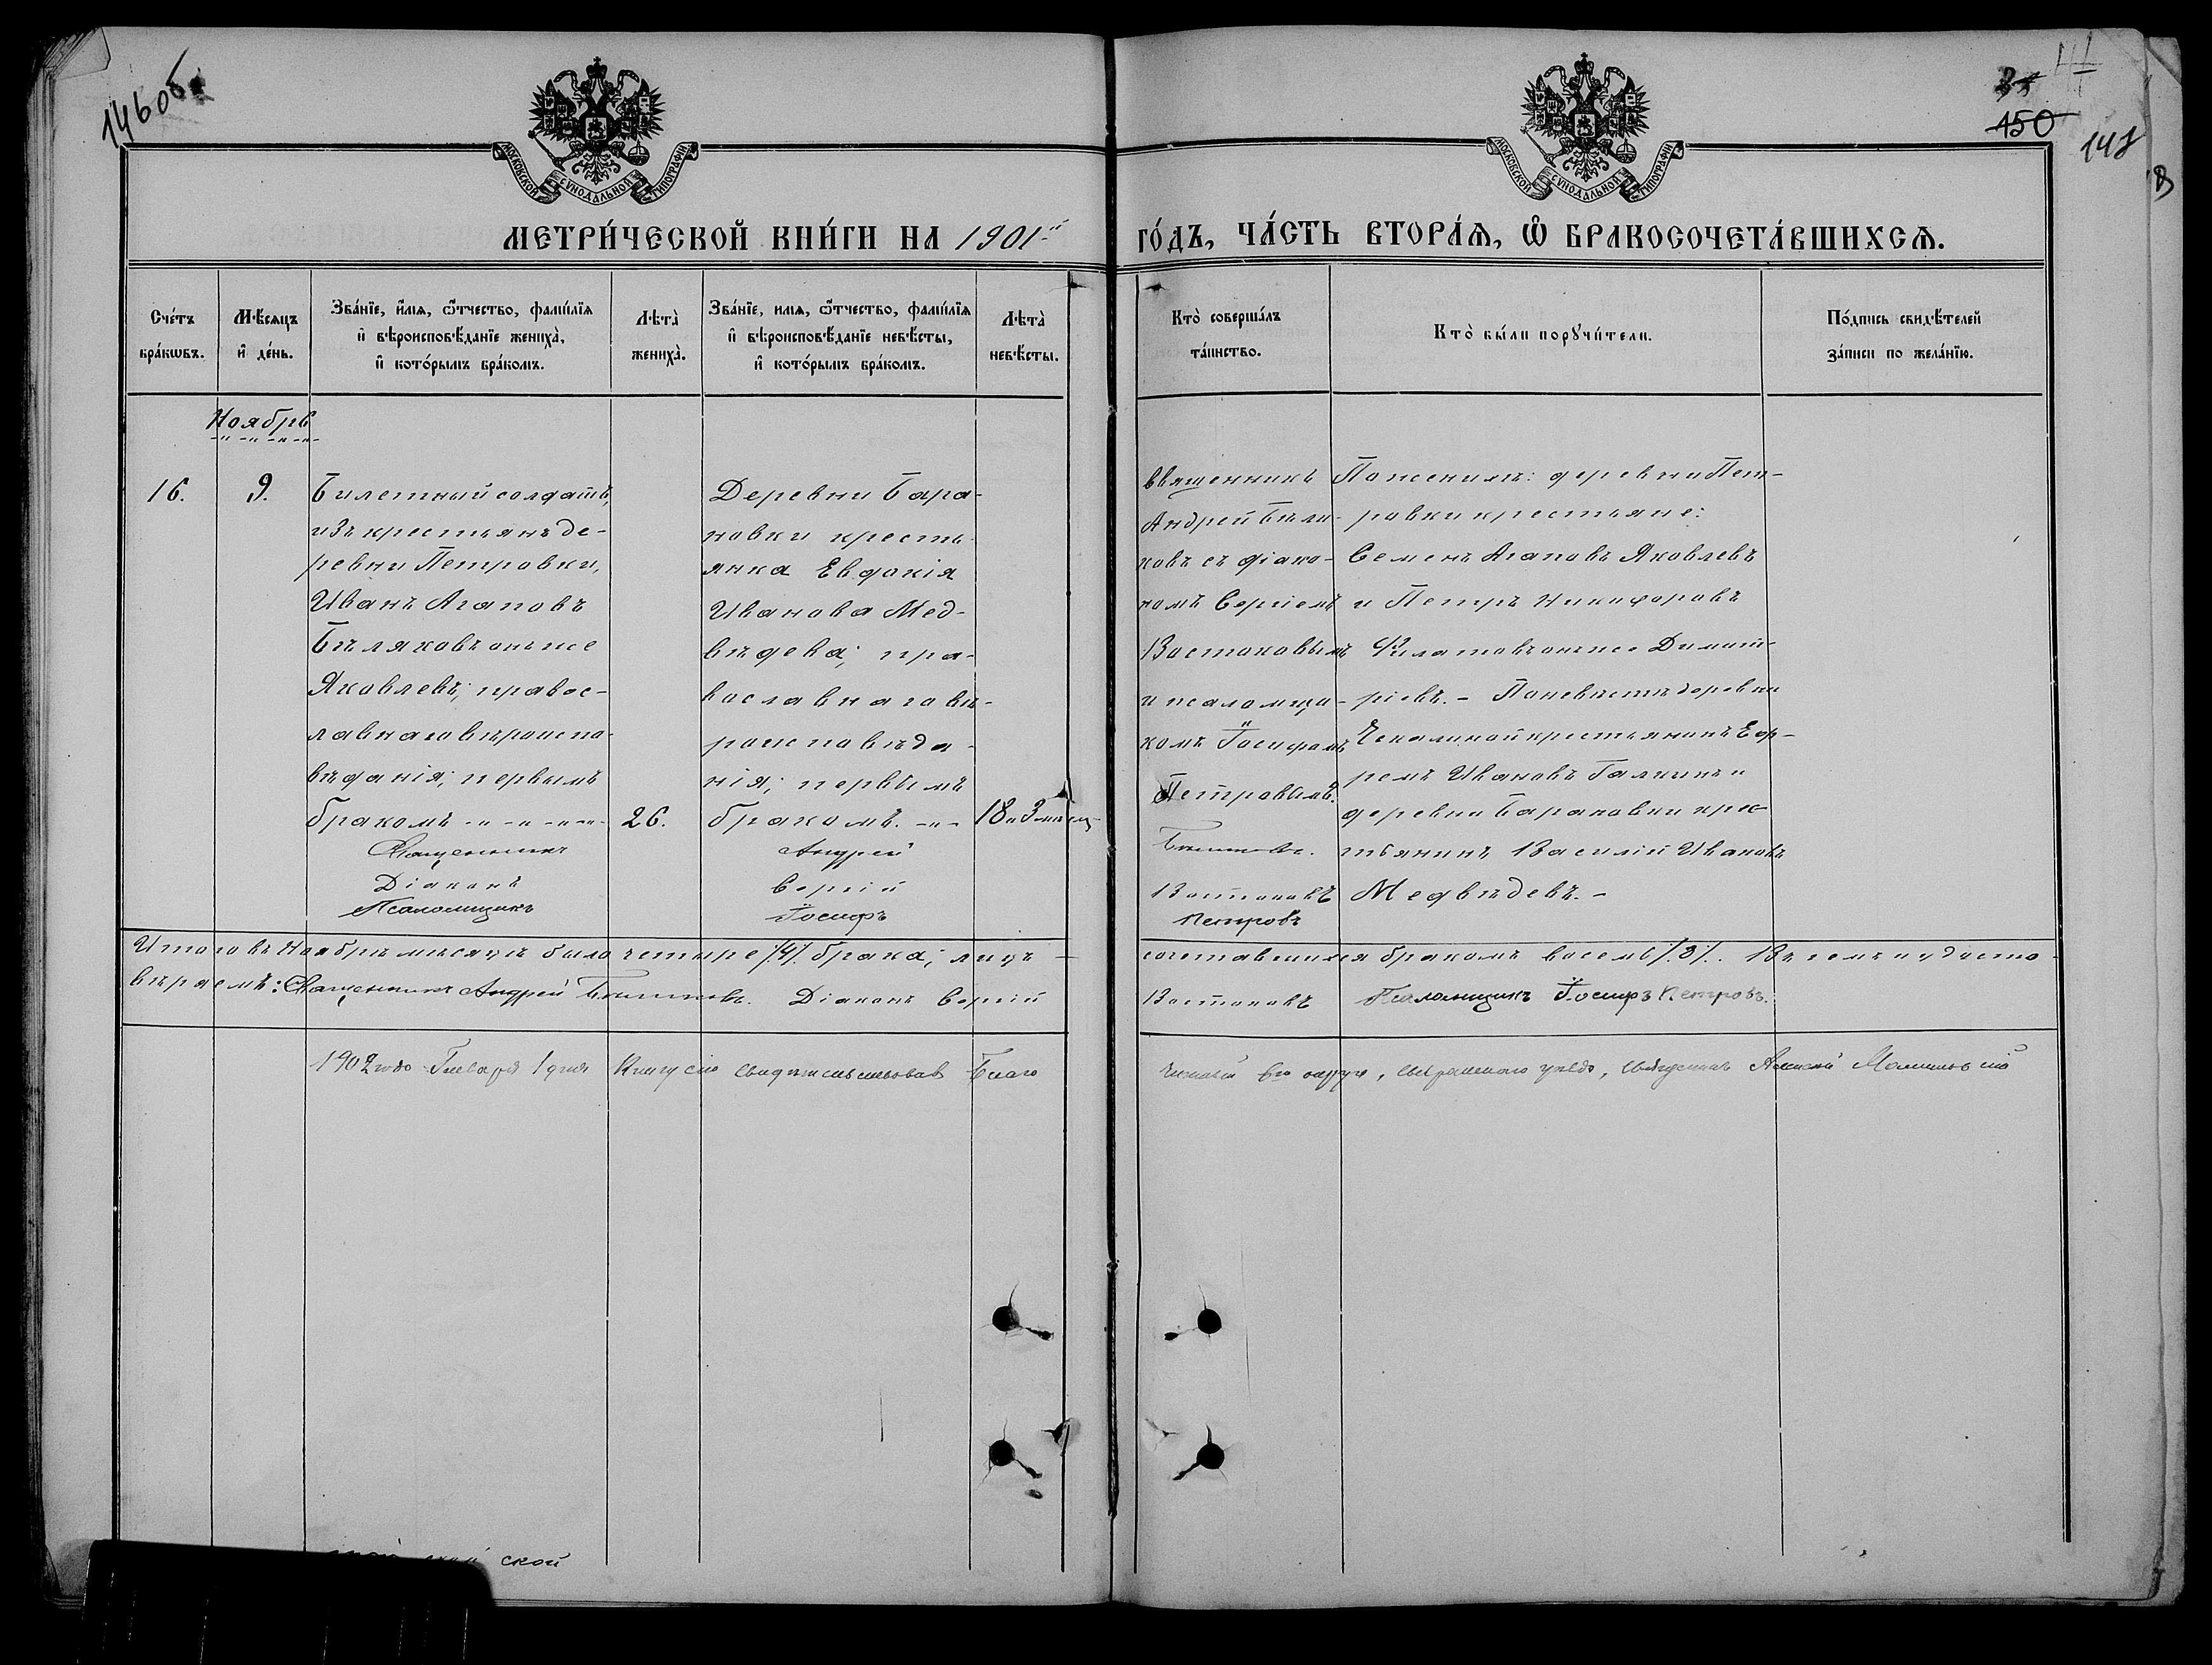 146об.
41
150
МОСКОВСКОЙ СѴНОДАЛЬНОЙ ТИПОГРАФІИ
МОСКОВСКОЙ СѴНОДАЛЬНОЙ ТИПОГРАФІИ
МЕТРИ́ЧЕСКОЙ КНИ́ГИ НА 1901-й
ГО́ДЪ, ЧА́СТЬ ВТОРА́Ѧ, Ѡ҆ БРАКОСОЧЕТА́ВШИХСѦ.
Сче́тъ
бра́кѡвъ.
Мѣ́сяцъ
и҆ де́нь.
Зва́нїе, и҆́мѧ, ѻ҆́тчество, фами́лїѧ
и҆ вѣроисповѣ́данїе жениха̀,
и҆ кото́рымъ бра́комъ.
Лѣта̀
жениха̀.
Зва́нїе, имѧ, ѻ҆́тчество, фами́лїѧ
и҆ вѣроисповѣ́данїе невѣ́сты,
и҆ кото́рымъ бра́комъ.
Лѣта̀
невѣ́сты.
Кто̀ соверша́лъ
та́инство.
Кто̀ бы́ли порꙋчи́тели.
По́дпись свидѣ́телей
за́писи по жела́нїю.
Ноябрь
16.
9.
Билетный солдатъ,
изъ крестьянъ де-
ревни Петровки,
Иванъ Агаповъ
Бѣляковъ онъ же
Яковлевъ; правос-
лавнаго вѣроиспо-
вѣданія; первымъ
бракомъ
26.
Деревни Бара-
новки кресть-
янка Евдокія
Иванова Мед-
вѣдева; пра-
вославнаго вѣ-
роисповѣда-
нія; первымъ
бракомъ.
18 и 3 мѣсяц.
Священникъ
Андрей
ковъ съ діако-
номъ Сергіемъ
Востоковымъ
и псаломщи-
комъ Іосифомъ
Петровымъ.
По женихѣ: деревни Пет-
ровки крестьяне:
Семенъ Агаповъ Яковлевъ
и Петръ Никифоровъ
Филатовъ онъ же Димит-
ріевъ. - По невѣстѣ деревни
Чекалиной крестьянинъ Еф-
ремъ Ивановъ Галкинъ и
деревни Барановки крес-
тьянинъ Василій Ивановъ
Медвѣдевъ. -
Священникъ Андрей
Діаконъ Сергій Востоковъ
Псаломщикъ Іосифъ Петровъ
Итого въ Ноябрѣ мѣсяцѣ было четыре /4/ брака; лицъ сочетавшихся бракомъ восемь /8/. Въ чемъ и удосто-
вѣряемъ: Священникъ Андрей Діаконъ Сергій Востоковъ Псаломщикъ Іосифъ Петровъ.
1902 года Генваря 1 дня Книгу сію свидѣтельствовалъ Благочинный 6го округа, уѣзда, Священникъ Алексѣй
ской